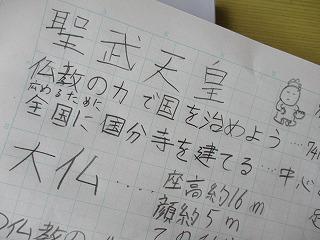 聖武天皇
仏教の力で国を治めよう……
広めるために
全国に国分寺を建てる…中心
大仏……座高約16m
顔約5m
の仏教の